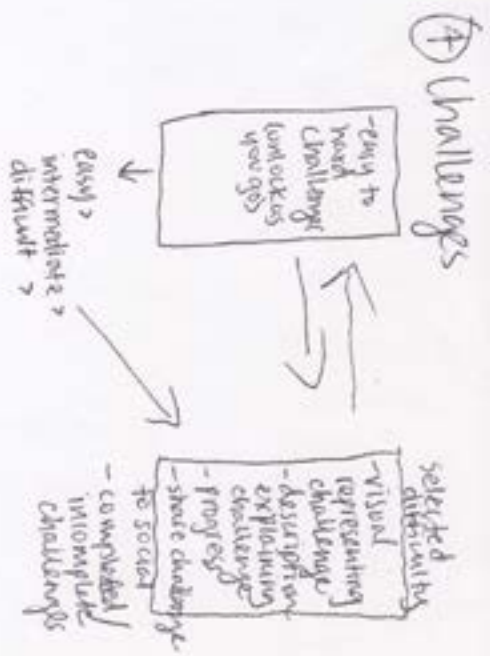 4 Challenges
- easy to
hard
challenges
(unlock as
you go)
easy >
intermediate >
difficult >
selected
difficulty
- visual
representing
challenge
- description
explaining
challenge
- progress
- share challenge
to social
- completed/
incomplete
challenges